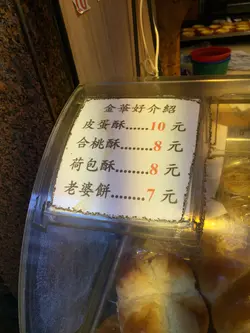 金華好介紹
皮蛋酥......10 元
合桃酥......8 元
荷包酥.......8 元
老婆餅.......7 元